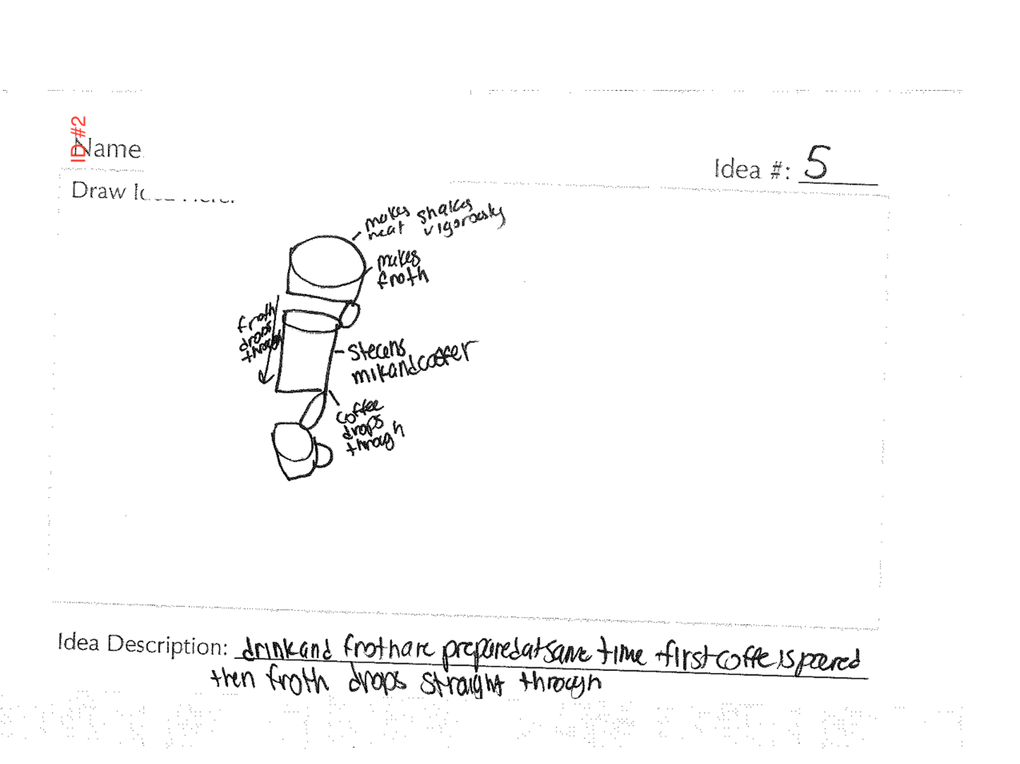 ID #2
Name
Idea #: 5
Draw
makes shakes
heat vigorously
makes
froth
froth
drops
through
steams
milk and coffee
coffee
drops
through
Idea Description: drink and froth are prepared at same time first coffe is poured
then froth drops straight through